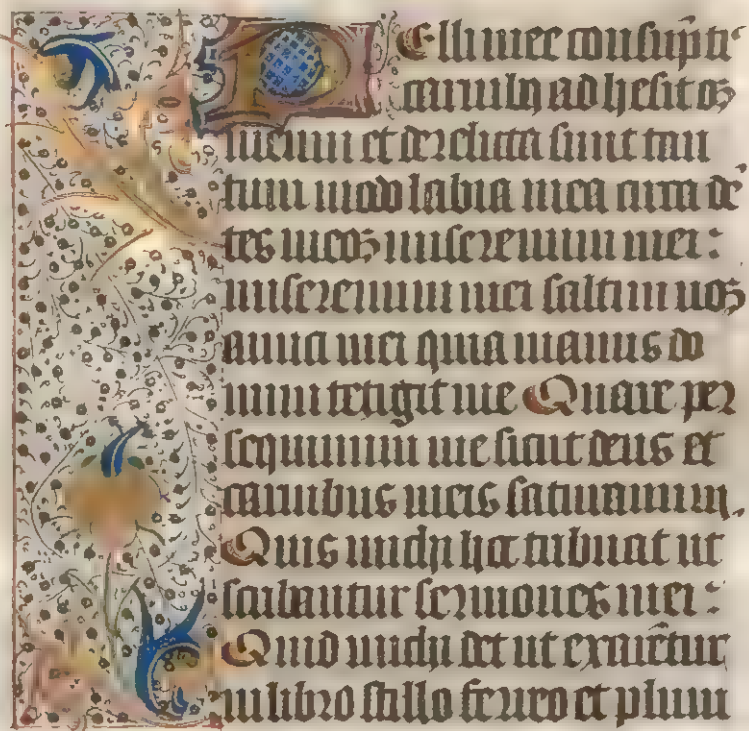 Pelli mee consūpti͛
carnibꝫ ad hesit os
meum et derelicta sunt tan
tum modo labia mea circa dē
tes meos miseremini mei :
miseremini mei saltim uos
amici mei quia manus do
mini tetigit me Quare per
sequimini me sicut deus et
carnibus meis saturamini.
Quis michi hoc tribuat ut
scribantur sermones mei :
Quid michi det ut exarētur
in libro stillo ferreo et plum